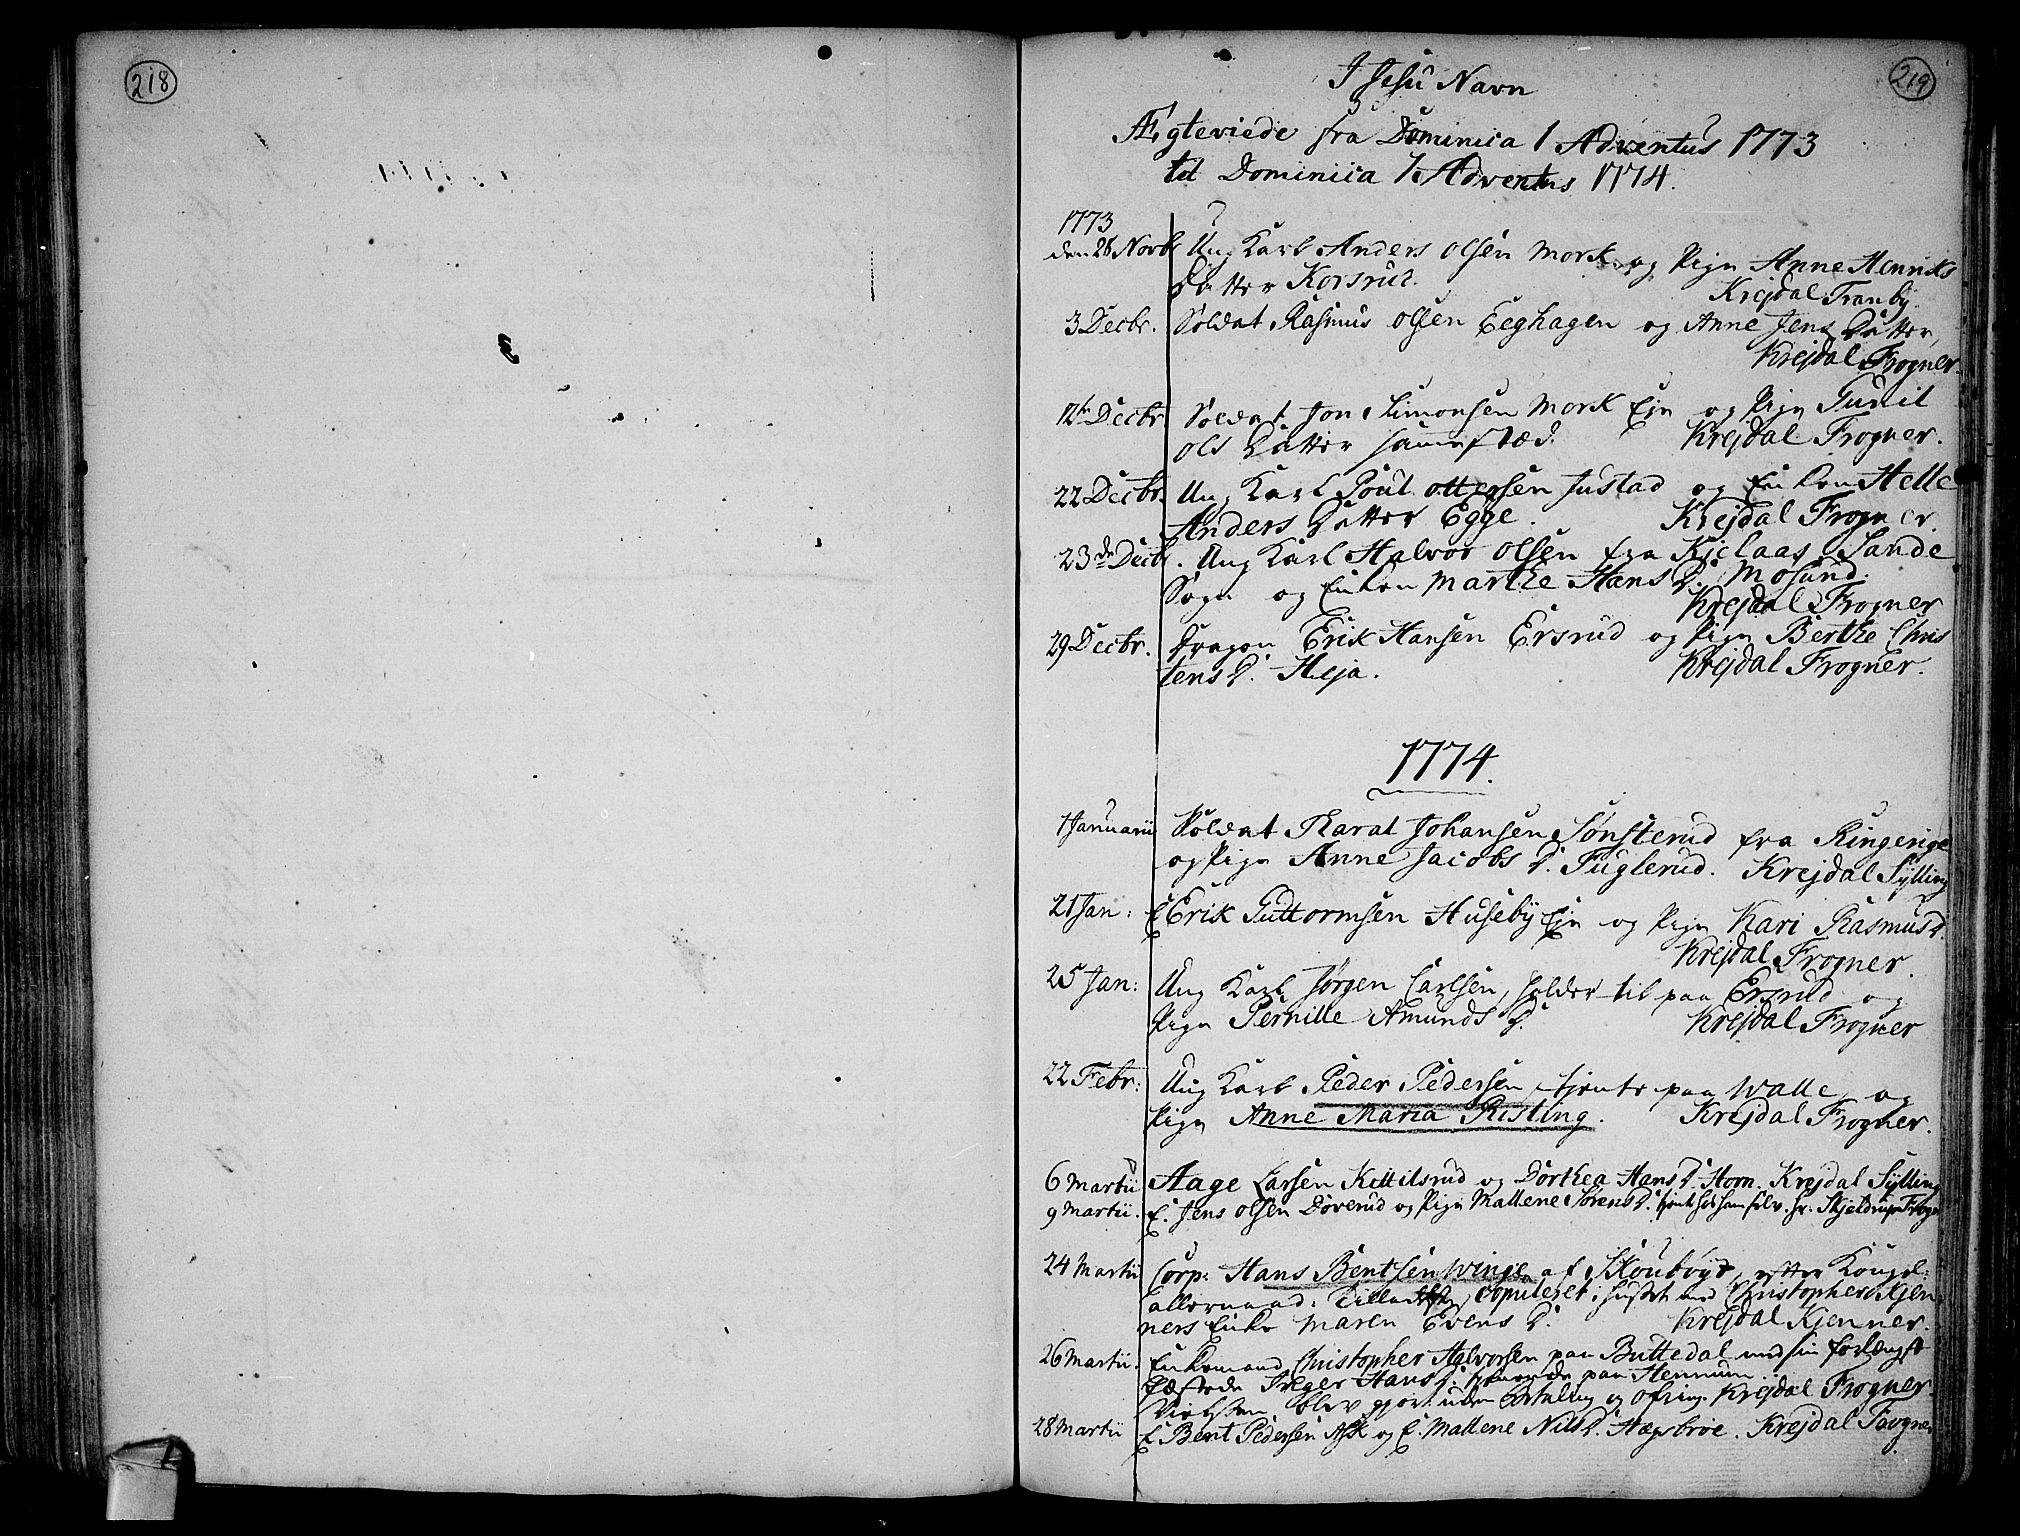 218
219
I Jesu Navn
Ægteviede fra Dominica 1 Adventus 1773
til Dominica 1 Adventus 1774.
1773
den 28 Novbr Ung Karl Anders Olsen Mork og Pige Anne Henriks
Datter Korsrud. Krejdal Tranby.
3 Decbr. Soldat Rasmus Olsen Eeghagen og Anne Jens Datter,
Krejdal Frogner.
12te Decbr. Soldat Jon Simonsen Mork Eje og Pige Gunil
Ols Datter sammested. Krejdal Frogner.
22 Decbr. Ung Karl Poul Ottersen Justad og Enken Helle
Anders Datter Egge. Krejdal Frogner.
23de Decb. Ung Karl Halvor Olsen fra Kjelaas Sande
Sogn og Enken Marthe Hans D. Mosund.
Krejdal Frogner
29 Decbr. Dragon Erik Hansen Ersrud og Pige Berthe Chris
tens D. Heja. Krejdal Frogner.
1774.
1 Januarii Soldat Haral Johansen Sønsterud fra Ringerige
og Pige Anne Jacobs D. Fuglerud. Krejdal Sylling
21 Jan: E Erik Guttormsen Huseby Eje og Pige Kari Rasmus D.
Krejdal Frogner.
25 Jan: Ung Karl Jørgen Carlsen, holder til paa Ersrud og
Pige Pernille Amunds D. Krejdal Frogner
22 Febr: Ung Karl Peder Pedersen, tjente paa Walle, og
Pige Anne Maria Risting. Krejdal Frogner.
6 Martii Aage Larsen Kittilsrud og Dorthea Hans D. Horn. Krejdal Sylling
9 Martii. E. Jens Olsen Døverud og Pige Mallene Sørens D. tjent hos Hr. Skjeldrup Frogn
24 Martii Corp: Hans Bentsen Winge af Skoubøyd, efter Kongel:
allernaad: Tilladelse, copuleret i Huset med Christopher Kjen
ners Enke Maren Evens D. Krejdal Kjenner.
26 Martii. Enkemand Christopher Halvorsen paa Buttedal med sin forlængst
fæstede Inger Hans D. tjenende paa Hennum.
Vielsen blev gjort uden Betaling og Ofring. Krejdal Frogner.
28 Martii E Bent Pedersen Ask og E. Mallene Nils D. Hægsbroe. Krejdal Frogner